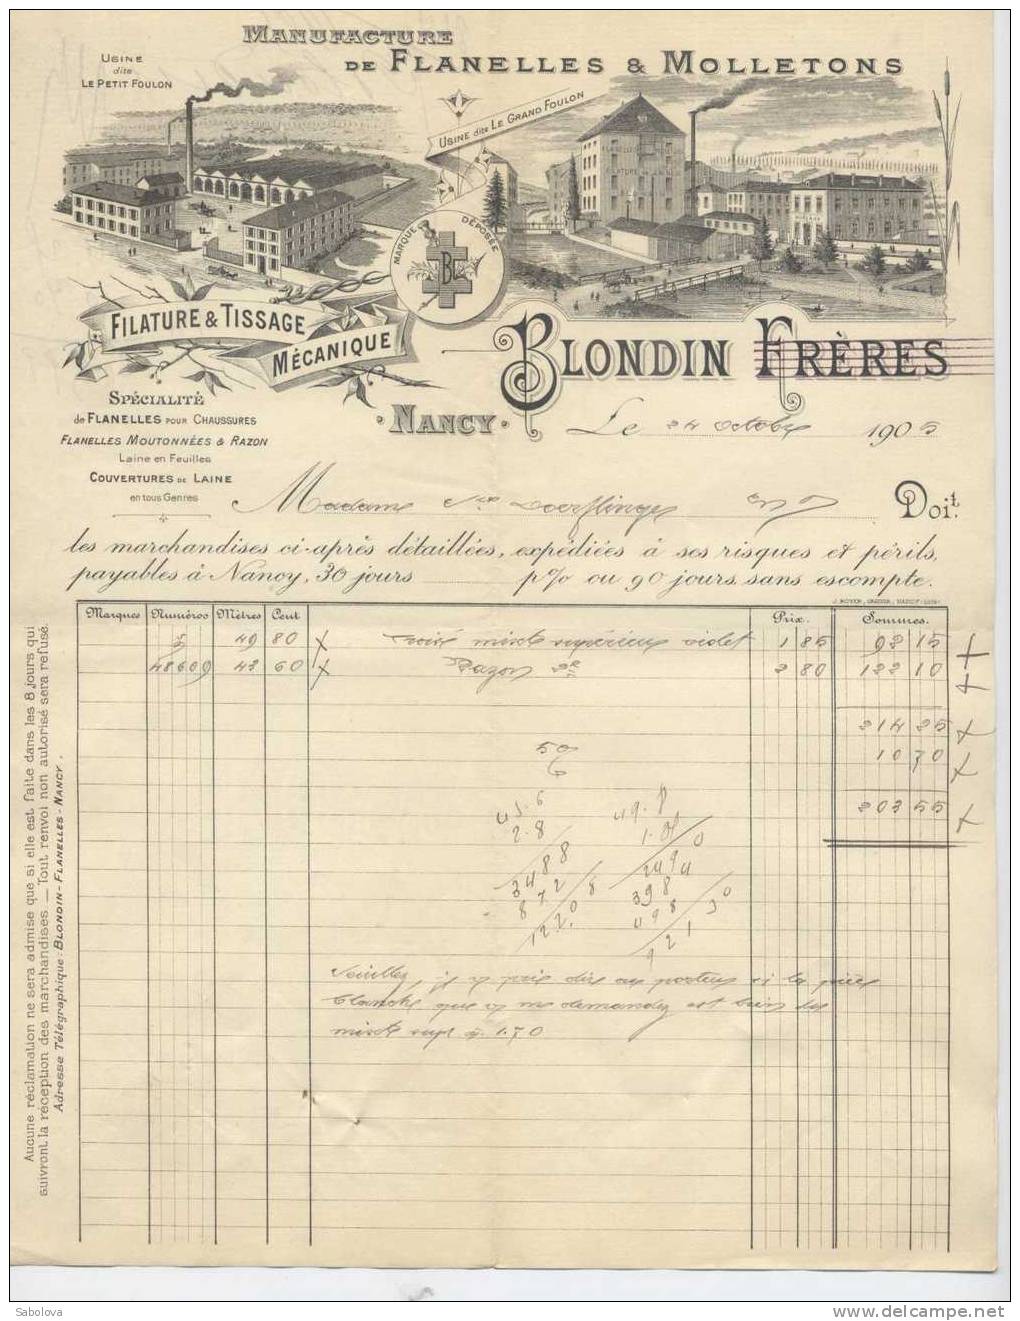 MANUFACTURE
DE FLANELLES & MOLLETONS
USINE
dite
LE PETIT FOULON
USINE dite LE GRAND FOULON
MARQUE DÉPOSÉE
B
FILATURE & TISSAGE
MÉCANIQUE
BLONDIN FRÈRES
NANCY
SPÉCIALITÉ
de FLANELLES POUR CHAUSSURES
FLANELLES MOUTONNÉES & RAZON
Laine en Feuilles
COUVERTURES DE LAINE
en tous Genres
Le 24 octobre 1905
Madame Doerflinger Doit
les marchandises ci-après détaillées, expédiées à ses risques et périls,
payables à Nancy, 30 jours p% ou 90 jours sans escompte.
J. ROYER, GRAVEUR, NANCY
Marques Numéros Mètres Cent Prix Sommes.
5 49 80 x croisé mixte supérieur violet 1 85 92 15
48609 43 60 x Razon 2 80 122 10
214 25 x
5% 10 70 x
203 55 x
43.6 49.8
2.8 1.85
3488 2490
872 398
122.08 498
92130
Veuillez, je v. prie dire au porteur si la pièce
blanche que v. me demandez est bien du
mixte supr à 1.70
Aucune réclamation ne sera admise que si elle est faite dans les 8 jours qui
suivront la réception des marchandises. — Tout renvoi non autorisé sera refusé.
Adresse Télégraphique: BLONDIN-FLANELLES-NANCY.
Sabolova
www.delcampe.net